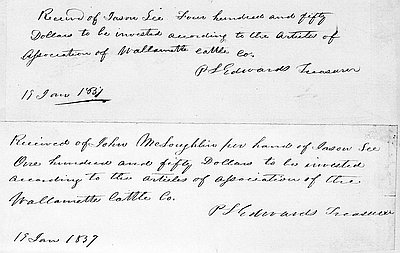 Receivd of Jason Lee Four hundred and fifty
Dollars to be invested according to the Articles of
Association of Wallamette Cattle Co.
P L Edwards Treasurer
19 Jan 1837
Received of John McLoughlin per hand of Jason Lee
One hundred and fifty Dollars to be invested
according to the articles of Association of the
Wallamette Cattle Co.
P L Edwards Treasurer
19 Jan 1837